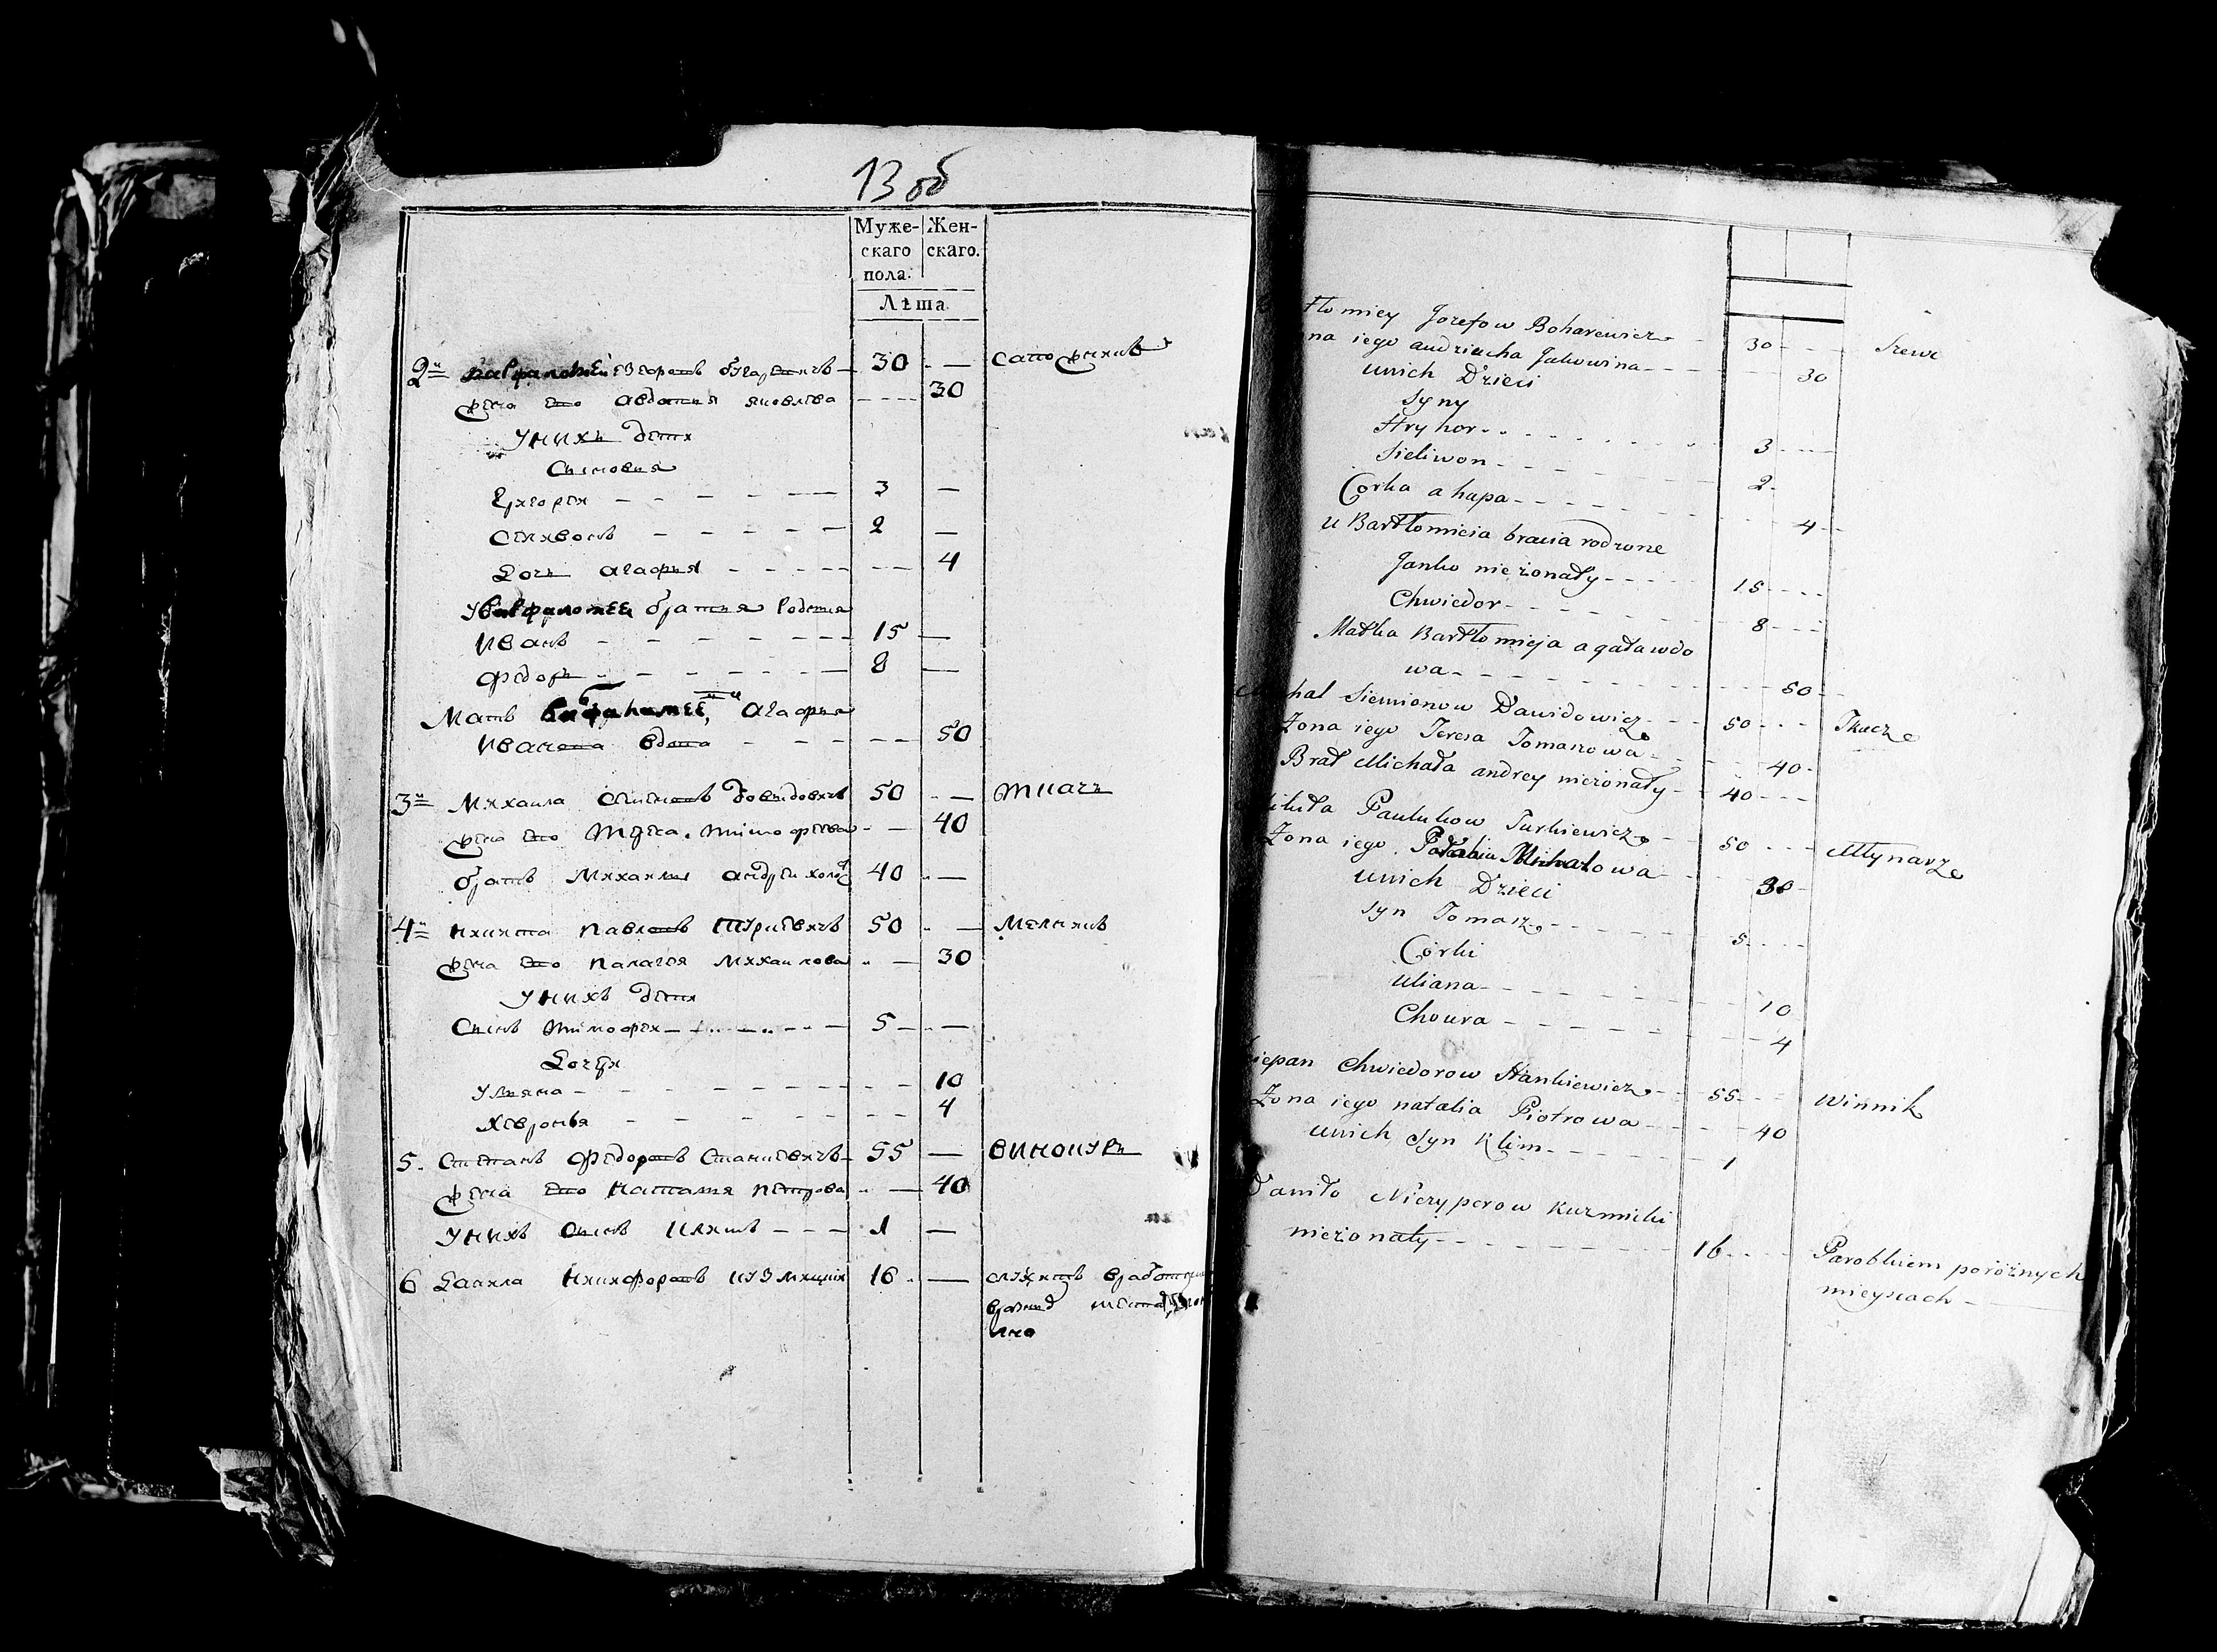 13 об
Муже-
скаго
пола.
Жен-
скаго.
Лѣта
2й 30 — сапожникъ
жена его Авдотия Яковлева 30
У нихъ дети
Сыновья
Григорей 3 —
Селивонъ 2 —
Дочь Агафия 4
У братия родния
Иванъ 15 —
Федоръ 8 —
Мать Агафия
Иванова вдова 50
3й Михаила Семеновъ Довидовичъ 50 — ткачъ
жена его Тимофеева 40
братъ Михаила Андрей холос 40 —
4й Никита Павловъ Туркевичъ 50 — Мелникъ
жена его Палагея Михайлова 30
У нихъ дети
Сынъ Тимофей 5 —
Дочери
Уляна 10
Хевронья 4
5. Степанъ Федоровъ Станкевичъ 55 — винокуръ
жена его Наталия Петрова 40
У нихъ сынъ Климъ 1 —
6 Данила Никифоровъ Кузмицкий 16 — служитъ
тłomiey Jozefow Boharewicz 30 Szewc
na iego andziucha Jakowina 30
unich Dzieci
syny
Hryhor 3
Sieliwon 2
Corka ahapa 4
u Bartłomieia bracia rodzone
Janko nieżonały 15
Chwiedor 8
Matka Bartłomieja agata wdo
wa 50
chal Siemionow Dawidowicz 50 Tkacz
Żona iego Teresa Tomaszowa 40
Brat Michała andrey nieżonaty 40
kita Pawlukow Turkiewicz 50 Młynarz
Żona iego Michałowa 30
unich Dzieci
syn Tomasz 5
Corki
Uliana 10
Choura 4
iepan Chwiedorow Stankiewicz 55 Winnik
Żona iego natalia Piotrowa 40
unich syn Klim 1
Daniło Niczyperow Kuzmicki
nieżonaty 16 Parobkiem poróżnych
mieyscach